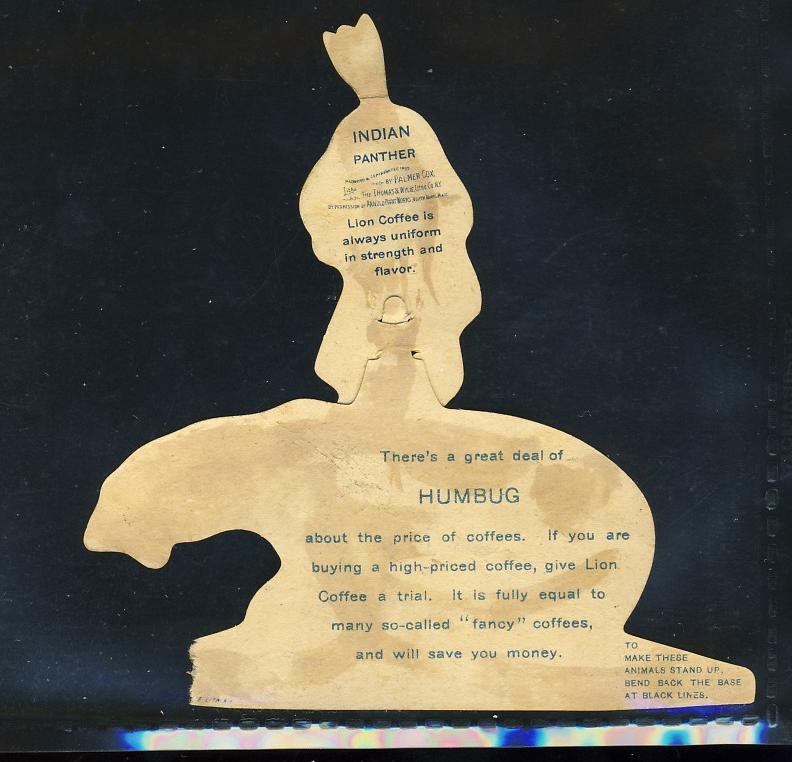 INDIAN
PANTHER
BY PALMER COX,
THE THOMAS & WYLIE LITHO. CO. N.Y.
BY PERMISSION OF ARNOLD PRINT WORKS NORTH ADAMS, MASS.
Lion Coffee is
always uniform
in strength and
flavor.
There's a great deal of
HUMBUG
about the price of coffees. If you are
buying a high-priced coffee, give Lion
Coffee a trial. It is fully equal to
many so-called "fancy" coffees,
and will save you money.
TO
MAKE THESE
ANIMALS STAND UP,
BEND BACK THE BASE
AT BLACK LINES.